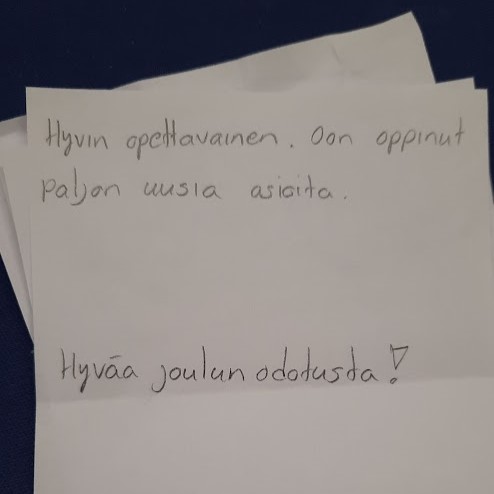 Hyvin opettavainen. Oon oppinut
paljon uusia asioita.
Hyvää joulun odotusta!